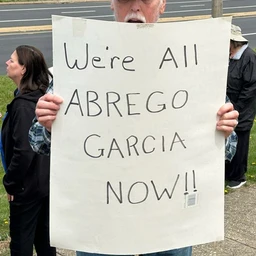 We're All
ABREGO
GARCIA
NOW!!